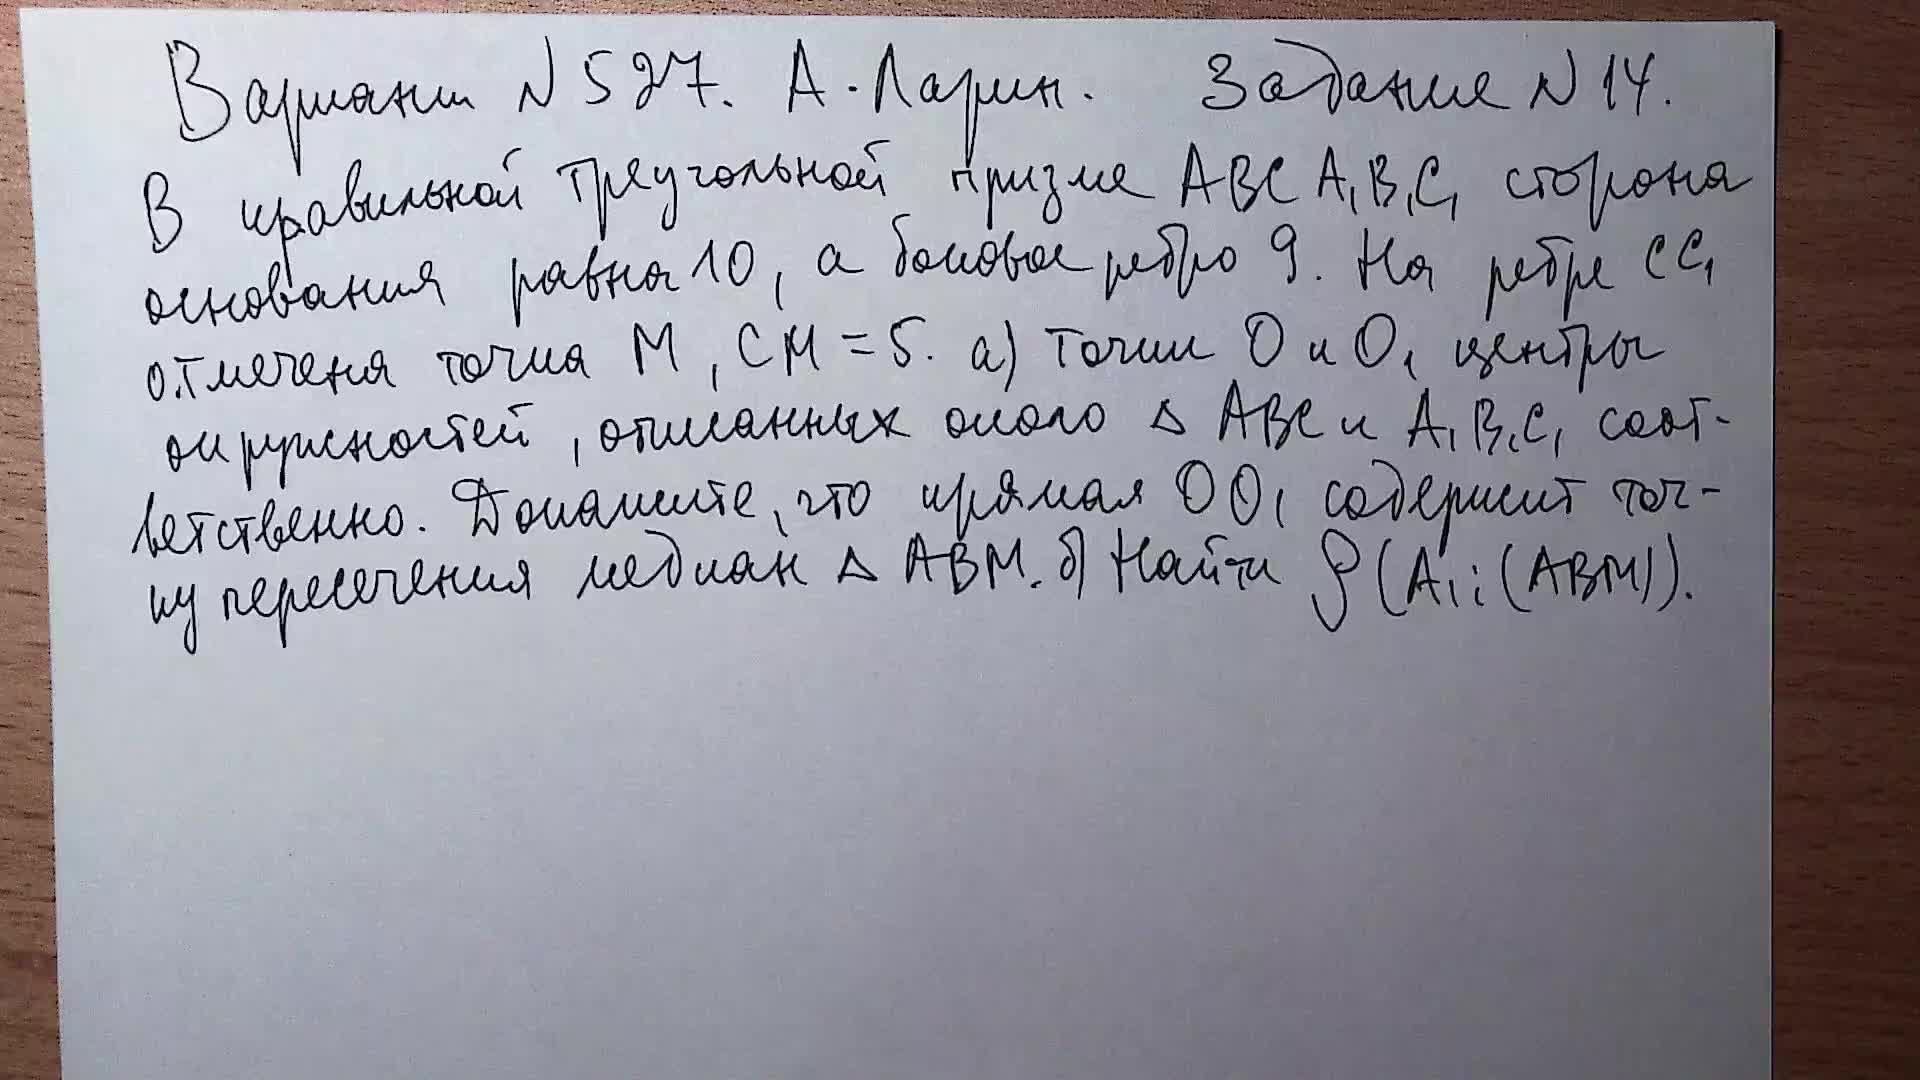 Вариант №527. А. Ларин. Задание №14.
В правильной треугольной призме ABCA₁B₁C₁ сторона
основания равна 10, а боковое ребро 9. На ребре CC₁
отмечена точка M, CM = 5. а) Точки O и O₁ центры
окружностей, описанных около Δ ABC и A₁B₁C₁ соот-
ветственно. Докажите, что прямая OO₁ содержит точ-
ку пересечения медиан Δ ABM. б) Найти ρ(A₁; (ABM)).